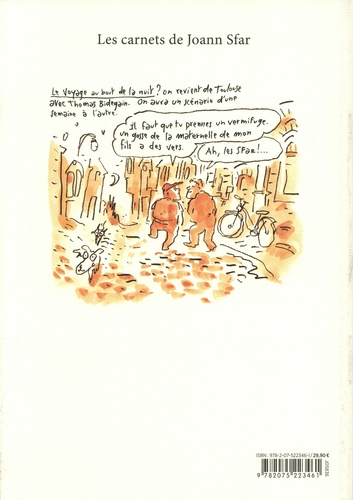 Les carnets de Joann Sfar
Le voyage au bout de la nuit? on revient de Toulouse
avec Thomas Bidegain. On aura un scénario d'une
semaine à l'autre.
Il faut que tu prennes un vermifuge.
un gosse de la maternelle de mon
fils a des vers.
Ah, les Sfar!...
ISBN: 978-2-07-522346-1/29,90 €
J05836
9 782075 223461